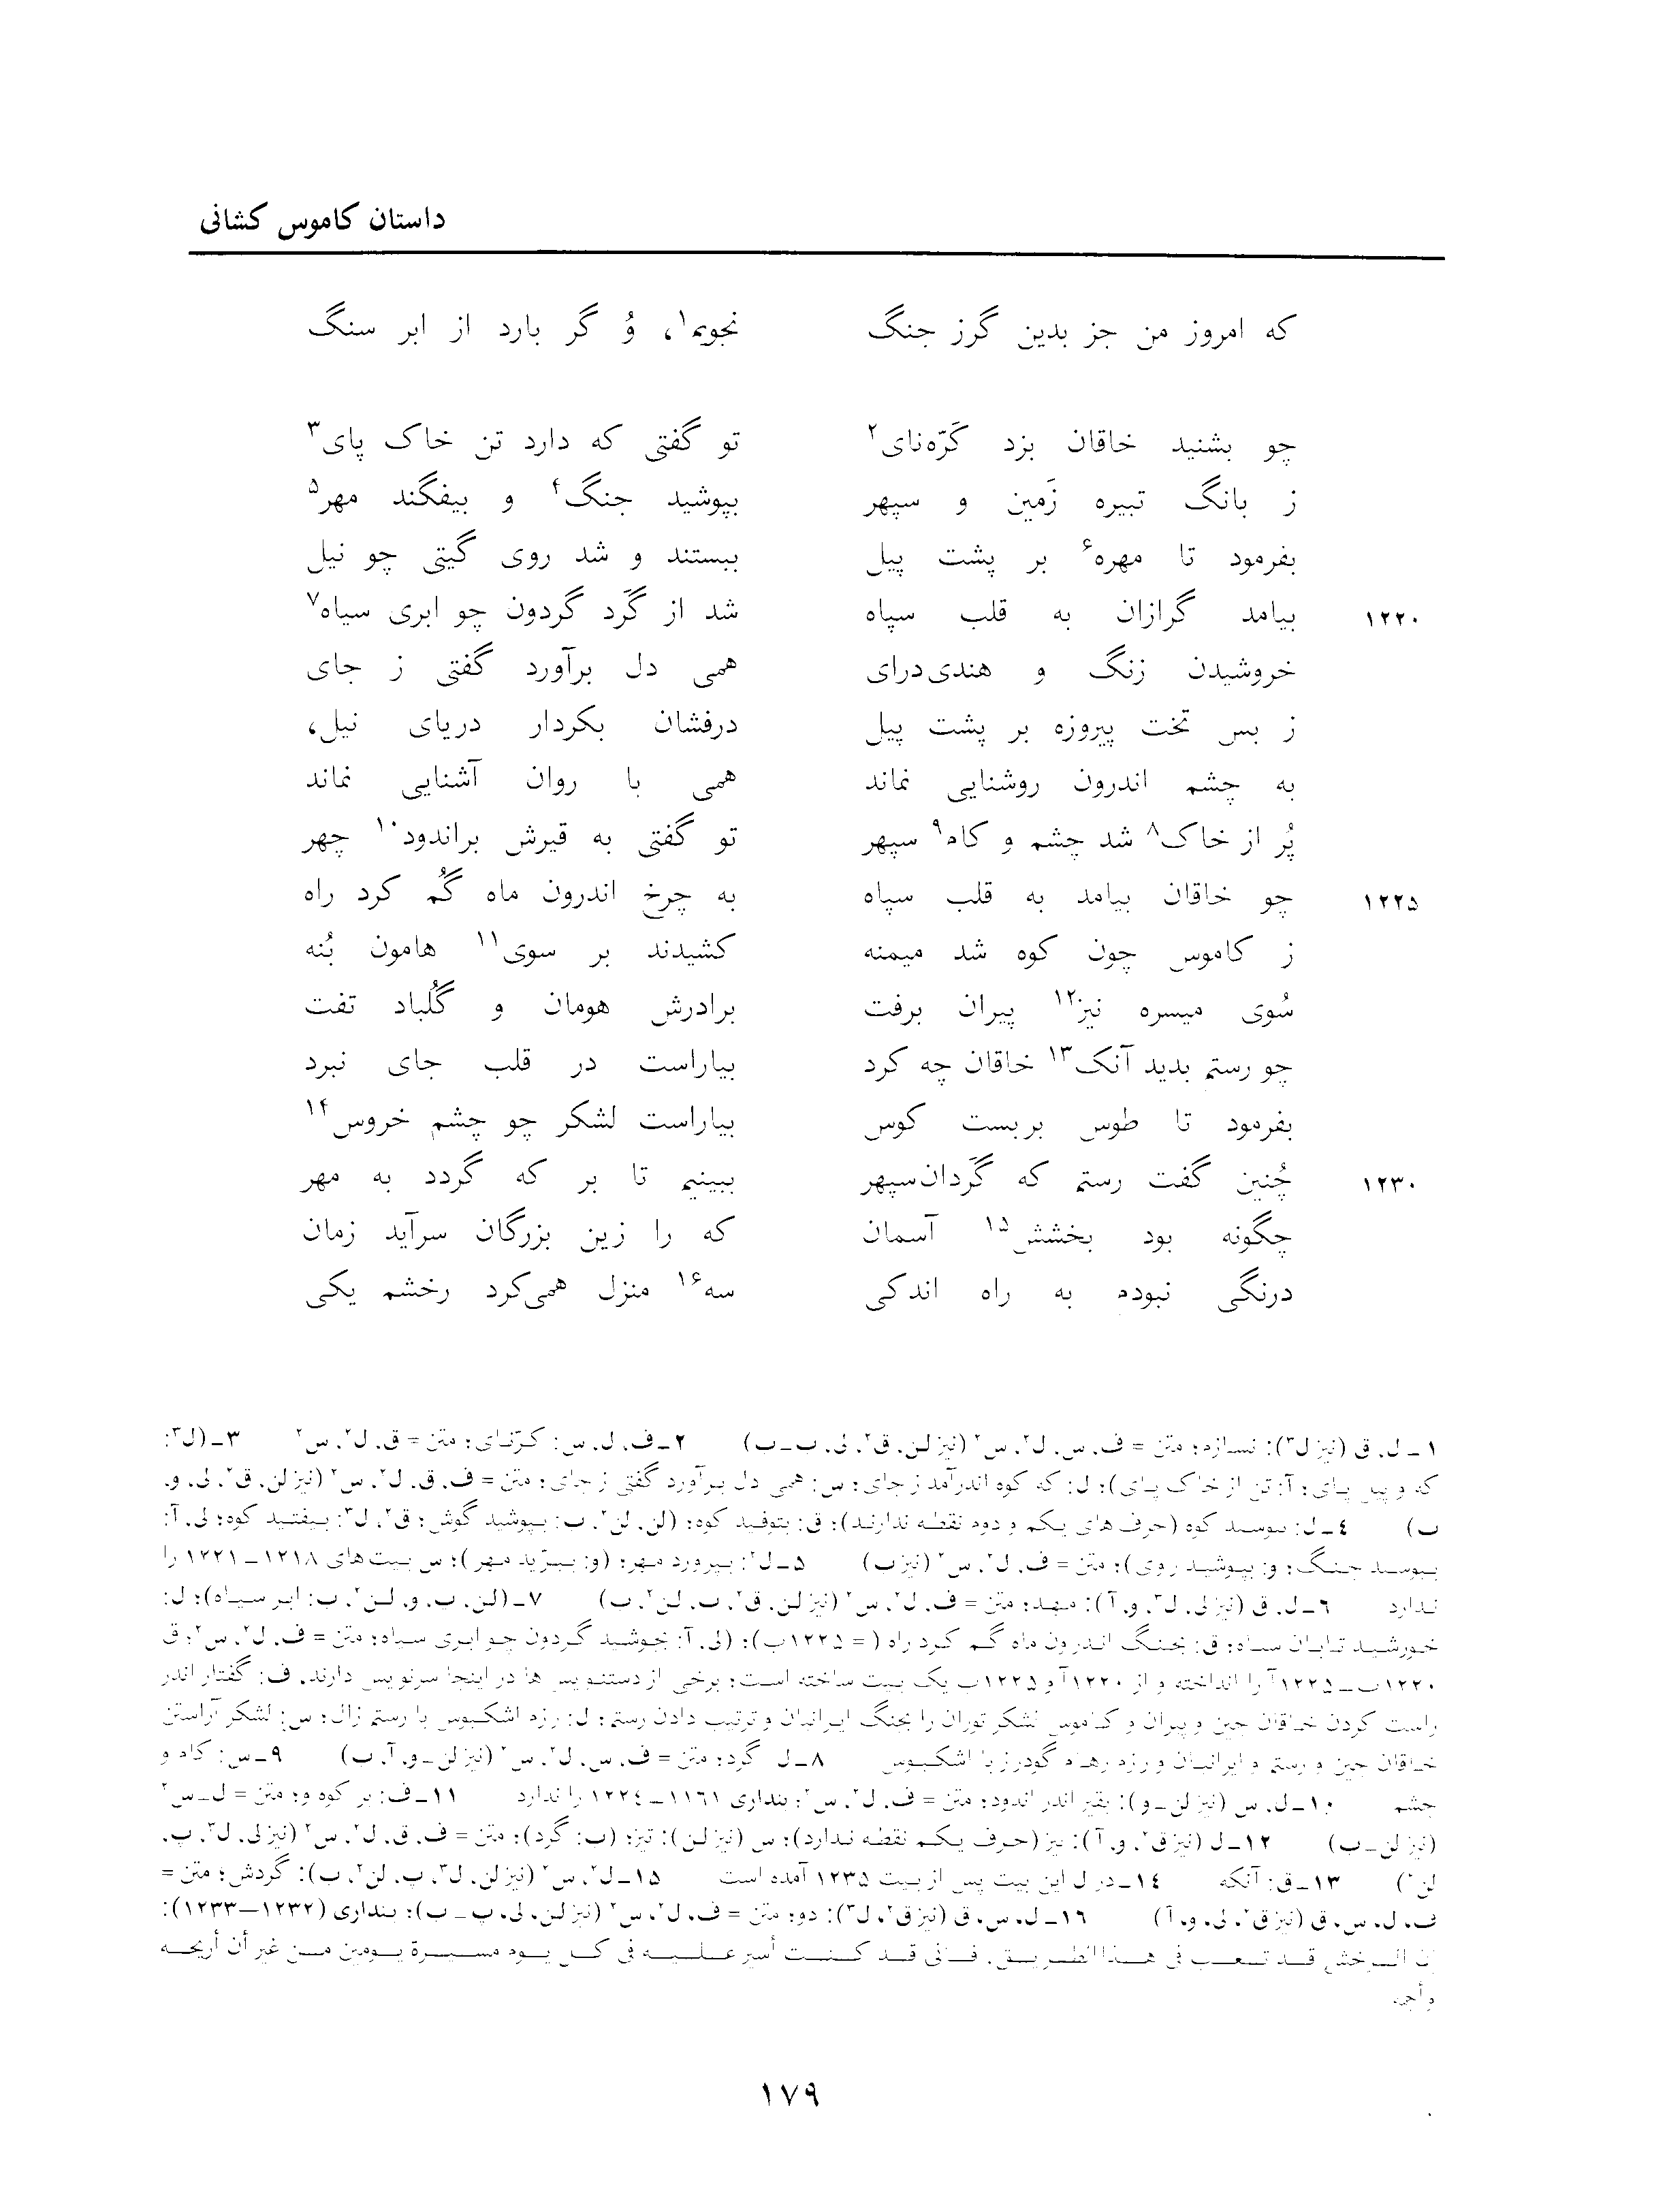 داستان کاموس کشانی
که امروز من جز بدین گرز جنگ نجویم۱، وُ گر بارد از ابر سنگ
چو بشنید خاقان بزد کَرّه‌نای۲ تو گفتی که دارد تن خاک پای۳
ز بانگ تبیره زَمین و سپهر بپوشید جنگ۴ و بیفگند مهر۵
بفرمود تا مهره۶ بر پشت پیل ببستند و شد روی گیتی چو نیل
۱۲۲۰ بیامد گرازان به قلب سپاه شد از گَرد گردون چو ابری سیاه۷
خروشیدن زنگ و هندی‌درای همی دل برآورد گفتی ز جای
ز بس تخت پیروزه بر پشت پیل درفشان بکردار دریای نیل،
به چشم اندرون روشنایی نماند همی با روان آشنایی نماند
پُر از خاک۸ شد چشم و کام۹ سپهر تو گفتی به قیرش براندود۱۰ چهر
۱۲۲۵ چو خاقان بیامد به قلب سپاه به چرخ اندرون ماه گُم کرد راه
ز کاموس چون کوه شد میمنه کشیدند بر سوی۱۱ هامون بُنه
سُوی میسره نیز۱۲ پیران برفت برادرش هومان و گُلباد تفت
چو رستم بدید آنک۱۳ خاقان چه کرد بیاراست در قلب جای نبرد
بفرمود تا طوس بربست کوس بیاراست لشکر چو چشم خروس۱۴
۱۲۳۰ چُنین گفت رستم که گَردان‌سپهر ببینیم تا بر که گردد به مهر
چگونه بود بخشش۱۵ آسمان که را زین بزرگان سرآید زمان
درنگی نبودم به راه اندکی سه۱۶ منزل همی‌کرد رخشم یکی
۱ـ ل، ق (نیز ل۳): نسازم؛ متن = ف، س، ل۲، س۲ (نیز لن، ق۲، لی، پ ـ ب) ۲ـ ف، ل، س: کرّنای؛ متن = ق، ل۲، س۲ ۳ـ (ل۳:
که و پیل پای؛ آ: تن از خاک پای)؛ ل: که کوه اندرآمد ز جای؛ س: همی دل برآورد گفتی ز جای؛ متن = ف، ق، ل۲، س۲ (نیز لن، ق۲، لی، و،
ب) ۴ـ ل: بوسید کوه (حرف‌های یکم و دوم نقطه ندارند)؛ ق: بتوفید کوه؛ (لن، لن۲، ب: بپوشید گوش؛ ق۲، ل۳: بیفتید کوه؛ لی، آ:
ببوسد جنگ؛ و: بپوشید روی)؛ متن = ف، ل۲، س۲ (نیز پ) ۵ـ ل۲: بپرورد مهر؛ (و: ببرّید مهر)؛ س بیت‌های ۱۲۱۸ـ۱۲۲۱ را
ندارد ۶ـ ل، ق (نیز لی، ل۳، و، آ): مهد؛ متن = ف، ل۲، س۲ (نیز لن، ق۲، پ، لن۲، ب) ۷ـ (لن، پ، و، لن۲، ب: ابر سیاه)؛ ل:
خورشید تابان سیاه؛ ق: بجنگ اندرون ماه گم کرد راه (= ۱۲۲۵ب)؛ (لی، آ: بجوشید گردون چو ابری سیاه؛ متن = ف، ل۲، س۲؛ ق
۱۲۲۰ب ـ ۱۲۲۵آ را انداخته و از ۱۲۲۰آ و ۱۲۲۵ب یک بیت ساخته است؛ برخی از دستنویس ها در اینجا سرنویس دارند. ف: گفتار اندر
راست کردن خاقان چین و پیران و کاموس لشکر توران را بجنگ ایرانیان و ترتیب دادن رستم؛ ل: رزم اشکبوس با رستم زال؛ س: لشکر آراستن
خاقان چین و رستم و ایرانیان و رزم رهام گودرز با اشکبوس ۸ـ ل گرد؛ متن = ف، س، ل۲، س۲ (نیز لن ـ و، آ، ب) ۹ـ س: کام و
چشم ۱۰ـ ل، س (نیز لن ـ و): بقیر اندر اندود؛ متن = ف، ل۲، س۲؛ بنداری ۱۱۶۱ـ۱۲۲۴ را ندارد ۱۱ـ ف: بر کوه و؛ متن = ل ـ س۲
(نیز لن ـ ب) ۱۲ـ ل (نیز ق۲، و، آ): بیز (حرف یکم نقطه ندارد)؛ س (نیز لن): تیز؛ (ب: گرد)؛ متن = ف، ق، ل۲، س۲ (نیز لی، ل۳، پ،
لن۲) ۱۳ـ ق: آنکه ۱۴ـ در ل این بیت پس از بیت ۱۲۳۵ آمده است ۱۵ـ ل۲، س۲ (نیز لن، ل۳، پ، لن۲، ب): گردش؛ متن =
ف، ل، س، ق (نیز ق۲، لی، و، آ) ۱۶ـ ل، س، ق (نیز ق۲، ل۳): دو؛ متن = ف، ل۲، س۲ (نیز لن، لی، پ ـ ب)؛ بنداری (۱۲۳۲ـ۱۲۳۳):
إن الرخش قد تعب فی هذا الطریق. فانی قد کنت أسیر علیه فی کل یوم مسیرة یومین من غیر أن أریحه
۱۷۹